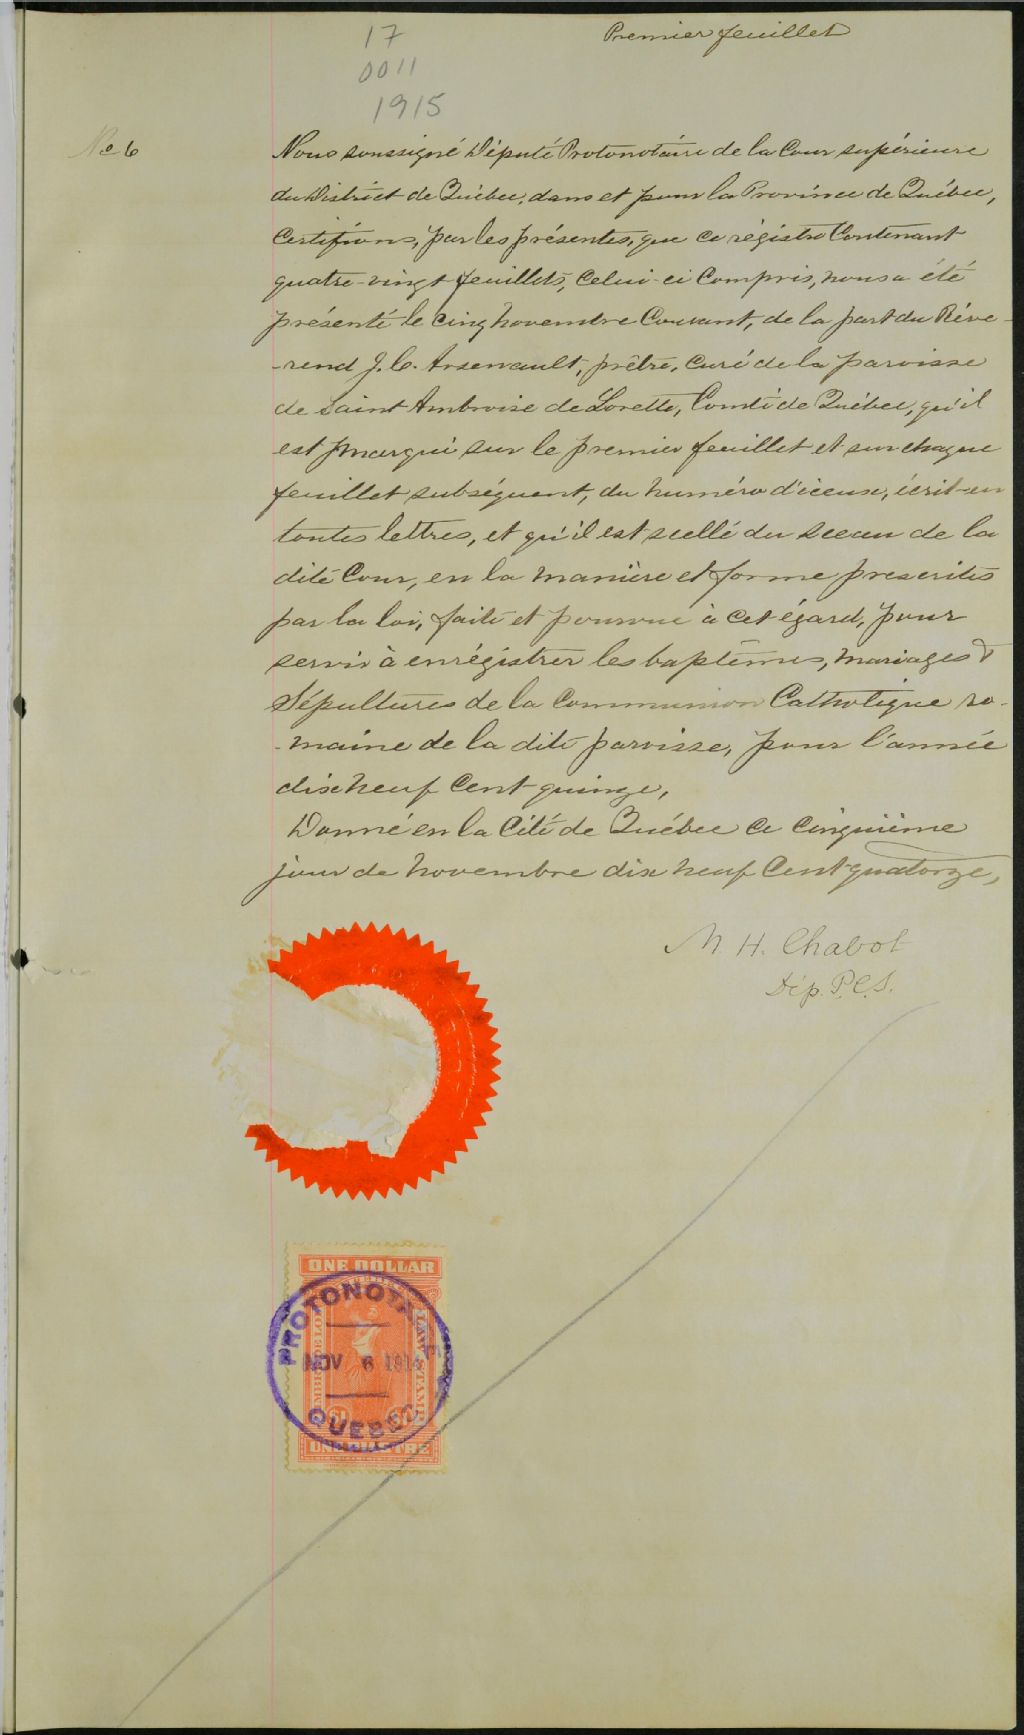 Premier feuillet
17
0011
1915
No 6
Nous soussigné Député Protonotaire de la Cour supérieure
du District de Québec, dans et pour la Province de Québec,
Certifions, par les présentes, que ce régistre Contenant
quatre-vingt feuillets, Celui-ci Compris, nous a été
présenté le cinq novembre Courant, de la part du Réve-
-rend J. C. Arsenault, prêtre, Curé de la paroisse
de Saint Ambroise de Lorette, Comté de Québec, qu'il
est marqué sur le premier feuillet et sur chaque
feuillet subséquent, du numéro d'iceux, écrit en
toutes lettres, et qu'il est scellé du sceau de la
dite Cour, en la manière et forme prescrites
par la loi, faite et pourvue à cet égard, pour
servir à enrégistrer les baptêmes, mariages &
Sépultures de la Communion Catholique ro-
-maine de la dite paroisse, pour l'année
dix neuf Cent quinze,
Donné en la Cité de Québec ce Cinquième
jour de novembre dix neuf Cent quatorze,
M. H. Chabot
Dép. P.C.S.
ONE DOLLAR
PROTONOTAIRE
LAW STAMP
NOV 6 1914
$1
QUEBEC